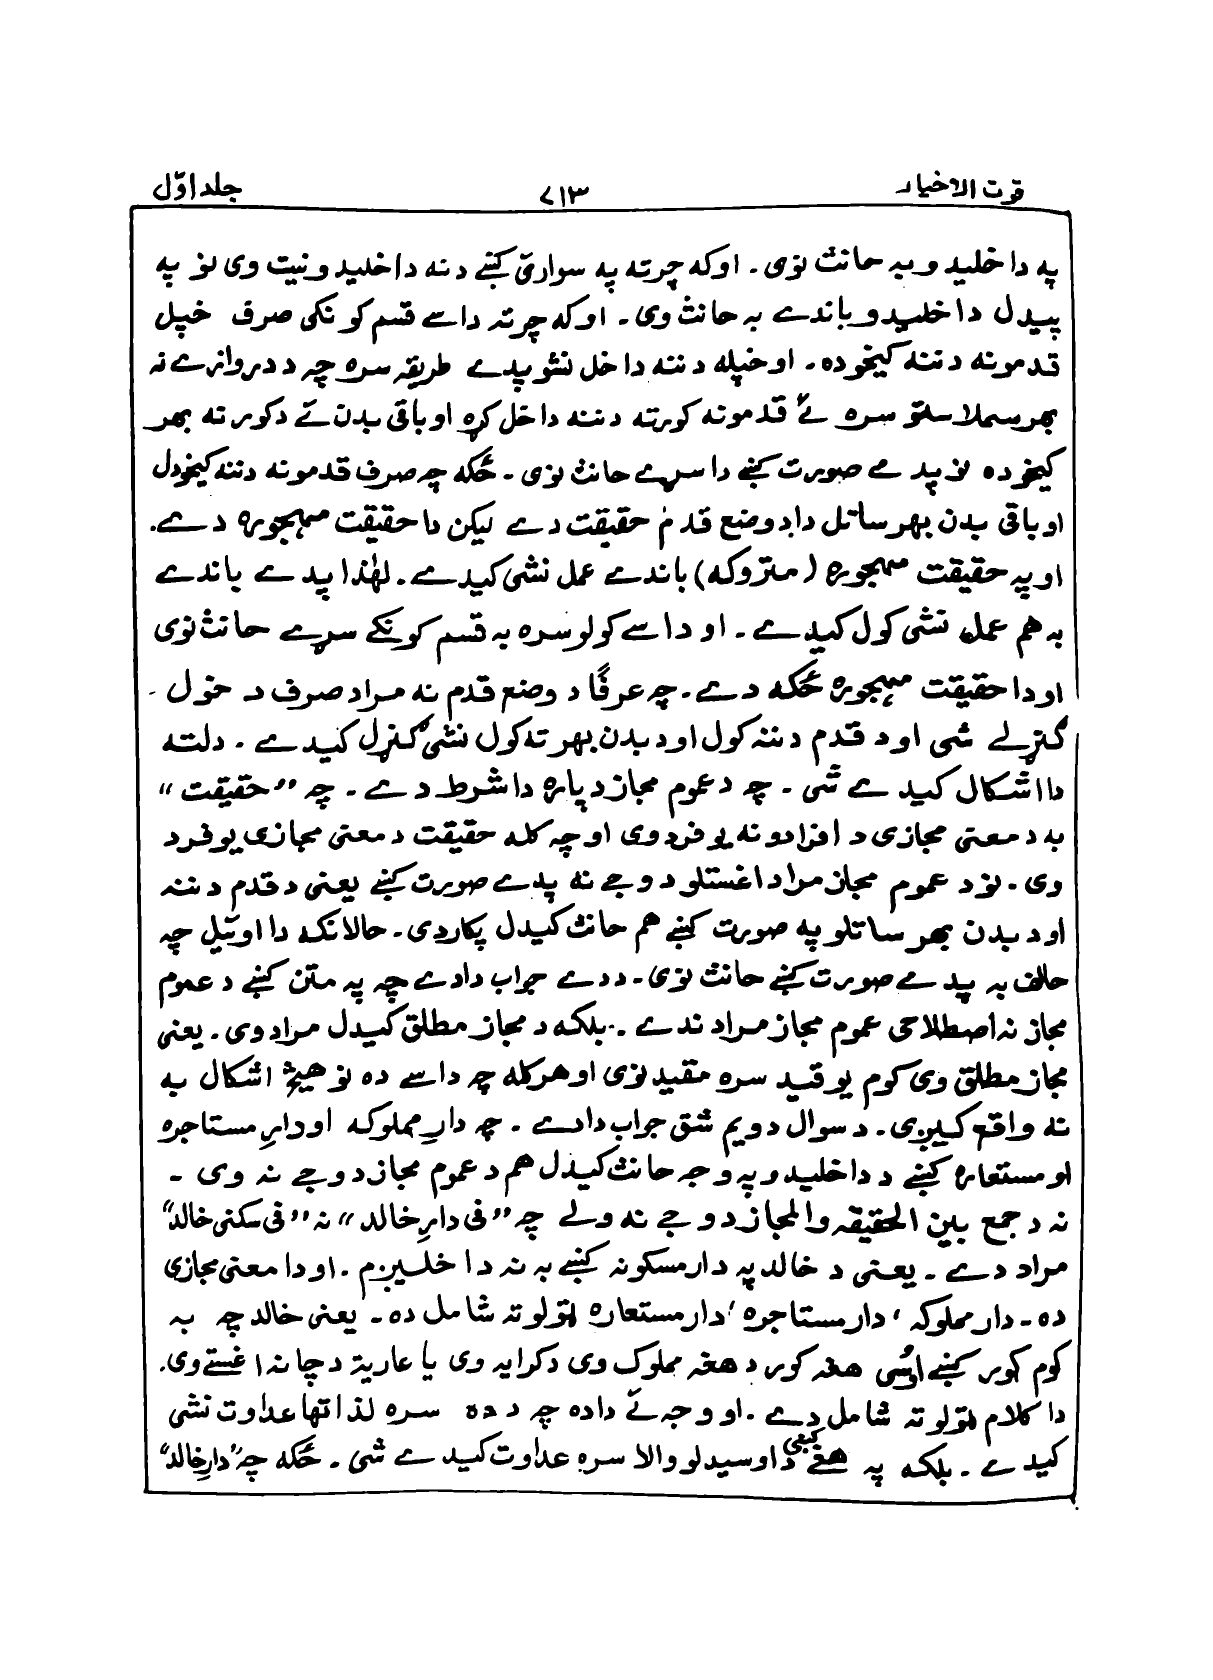 قوت الاخیار ۷۱۳ جلد اوّل
په داخلیدو به حانث نوی۔ اوکه چرته په سوارئ کښے دننه داخلیدو نیت وی نو په
پیدل داخلیدو باندے به حانث وی۔ اوکه چرته داسے قسم کونکی صرف خپل
قدمونه دننه کیخوده۔ اوخپله دننه داخل نشو پدے طریقه سره چه د دروازے نه
بهر سملاستو سره ئے قدمونه کورته دننه داخل کړه او باقی بدن ئے دکور نه بهر
کیخوده نو پدے صورت کښے دا سړے حانث نوی۔ ځکه چه صرف قدمونه دننه کیخودل
او باقی بدن بهر ساتل دا د وضع قدم حقیقت دے لیکن دا حقیقت مهجوره دے۔
اوپه حقیقت مهجوره (متروکه) باندے عمل نشی کیدے۔ لهٰذا پدے باندے
به هم عمل نشی کول کیدے۔ او داسے کولو سره به قسم کونکے سړے حانث نوی
اودا حقیقت مهجوره ځکه دے۔ چه عرفًا د وضع قدم نه مراد صرف د خول۔
ګنړلے شی اود قدم دننه کول اود بدن بهر ته کول نشی ګنړل کیدے۔ دلته
دا اشکال کیدے شی۔ چه دعموم مجاز دپاره دا شرط دے۔ چه ”حقیقت“
به د معنی مجازی د افرادو نه یو فرد وی اوچه کله حقیقت د معنی مجازی یو فرد
وی۔ نو د عموم مجاز مراد اغستلو د وجے نه پدے صورت کښے یعنی د قدم دننه
اود بدن بهر ساتلو په صورت کښے هم حانث کیدل پکار دی۔ حالانکه دا اوئیل چه
حالف به پدے صورت کښے حانث نوی۔ ددے جواب دادے چه په متن کښے د عموم
مجاز نه اصطلاحی عموم مجاز مراد ندے۔ بلکه د مجاز مطلق کیدل مراد وی۔ یعنی
مجاز مطلق وی کوم یو قید سره مقید نوی اوهرکله چه داسے ده نو هیڅ اشکال به
نه واقع کیږی۔ د سوال دویم شق جواب دادے۔ چه دارِ مملوکه اودارِ مستاجره
او مستعاره کښے د داخلیدو په وجه حانث کیدل هم د عموم مجاز د وجے نه وی۔
نه د جمع بین الحقیقه والمجاز د وجے نه ولے چه ”فی دارِ خالد“ نه ”فی سکنی خالد“
مراد دے۔ یعنی د خالد په دار مسکونه کښے به نه داخلیږم۔ اودا معنی مجازی
ده۔ دار مملوکه، دار مستاجره، دار مستعاره ټولو ته شامل ده۔ یعنی خالد چه به
کوم کور کښے اوسی هغه کور د هغه مملوک وی دکرایه وی یا عاریة د چا نه اغستے وی۔
دا کلام ټولو ته شامل دے۔ او وجه ئے داده چه د ده سره لذاتها عداوت نشی
کیدے۔ بلکه په هغے کښی د اوسیدلو والا سره عداوت کیدے شی۔ ځکه چه ”دارِ خالد“